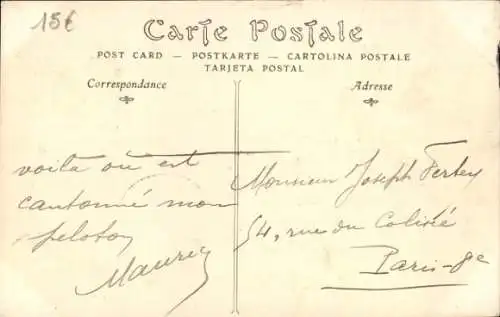 15€
Carte Postale
POST CARD — POSTKARTE — CARTOLINA POSTALE
TARJETA POSTAL
Correspondance
Adresse
voilà où est
cantonné mon
peloton
Maurice
Monsieur Joseph
54, rue du Colisée
Paris-8e